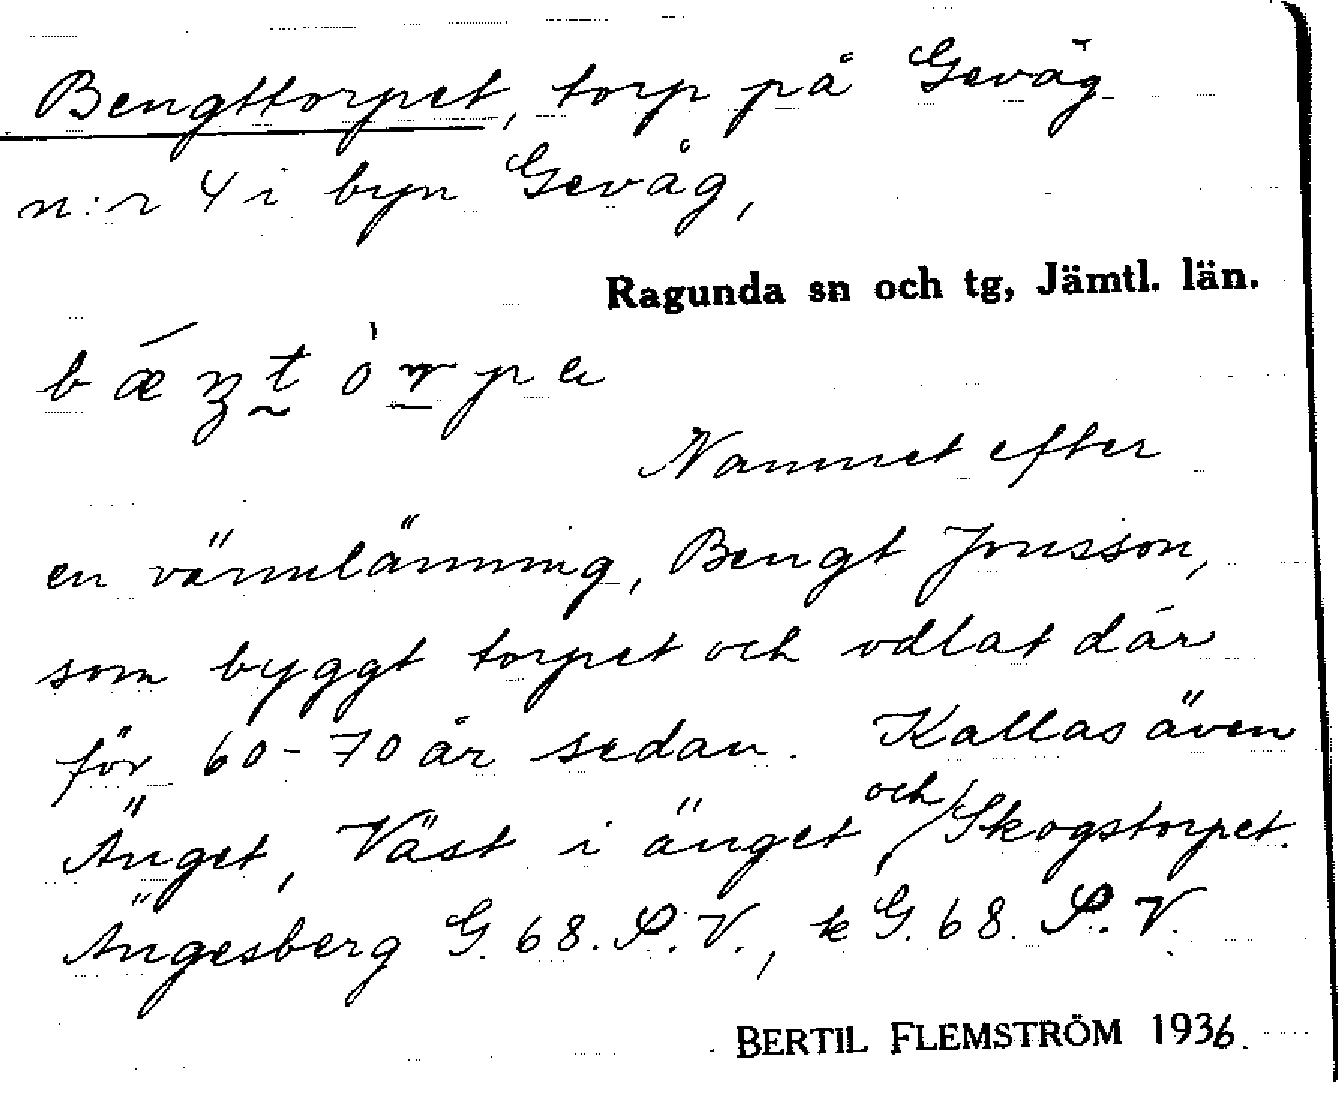 Bengttorpet, torp på Gevåg
n:r 4 i byn Gevåg,
Ragunda sn och tg, Jämtl. län.
Namnet efter
en värmlänning, Bengt Jonsson,
som byggt torpet och odlat där
för 60-70 år sedan. Kallas även
Änget, Väst i änget och Skogstorpet.
Ängesberg G. 68. S. V., k G. 68. S. V.
BERTIL FLEMSTRÖM 1936.